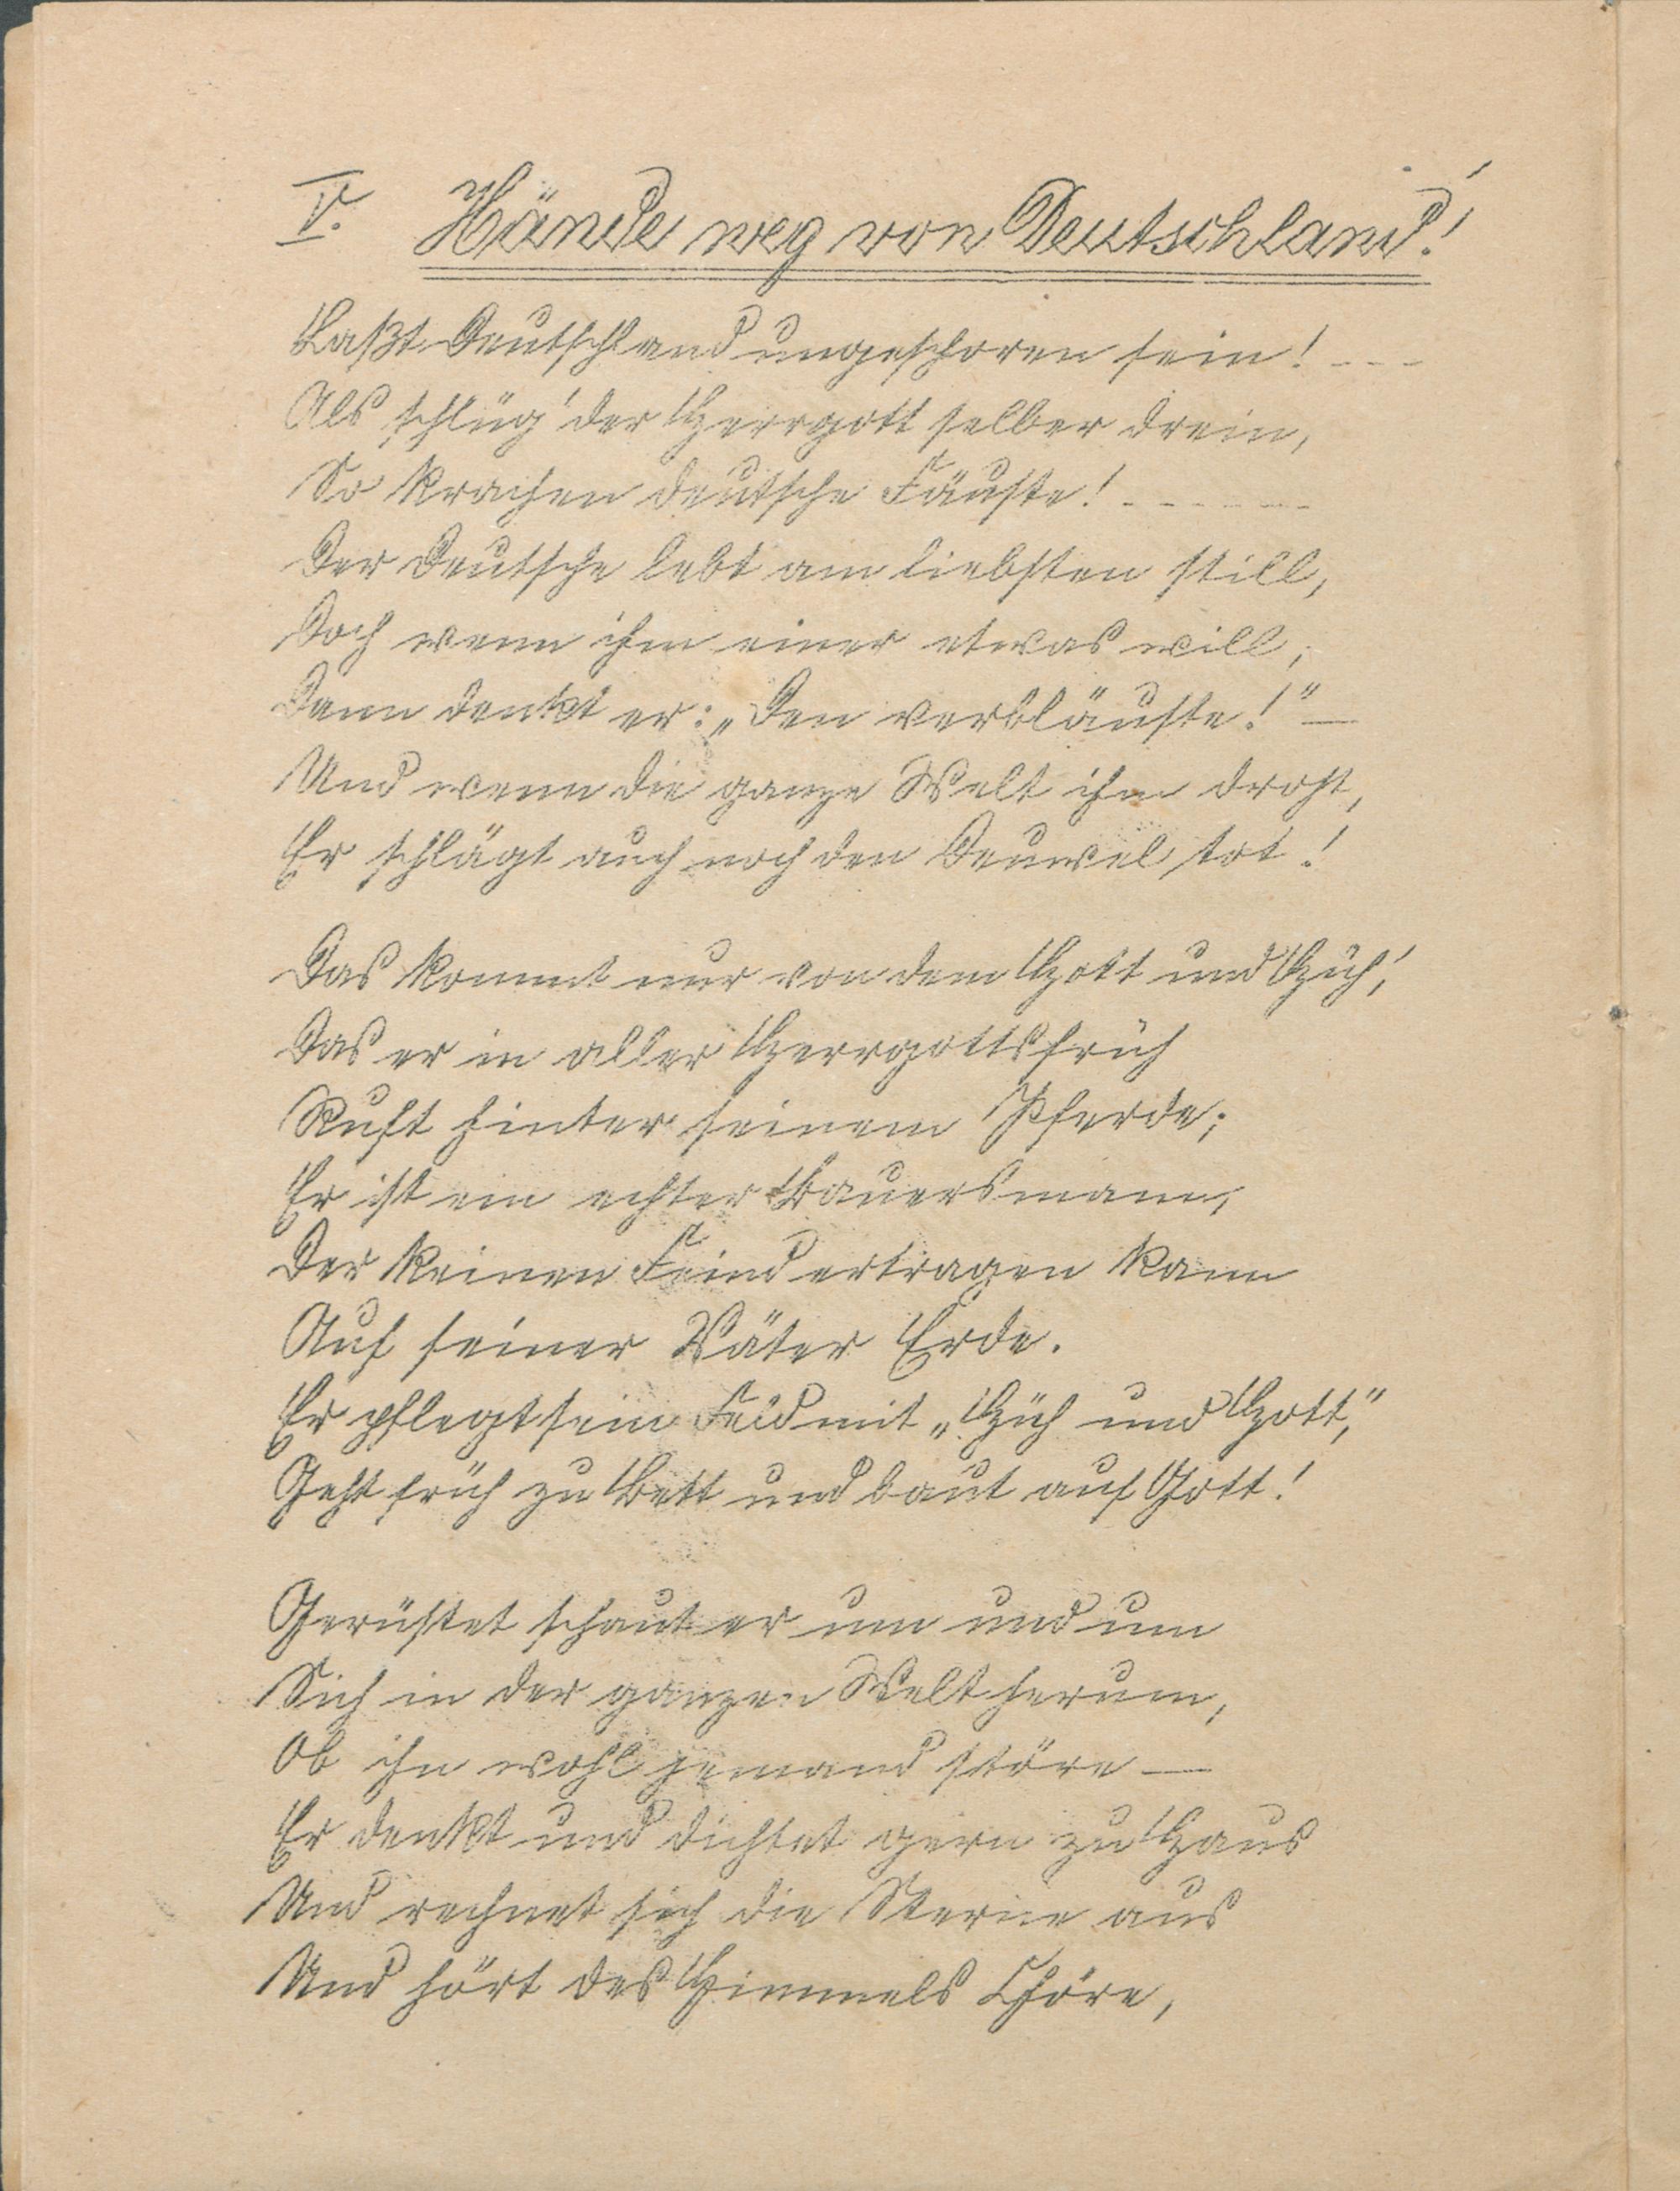 V. Hände weg von Deutschland!
Laßt Deutschland ungeschoren sein! - - -
Als schlüg' der Herrgott selber drein,
So krachen deutsche Fäuste! - - - - - -
Der Deutsche lebt am liebsten still,
Doch wenn ihm einer etwas will,
Dann denkt er: „Den verbläuste!" —
Und wenn die ganze Welt ihm droht,
Er schlägt auch noch den Deuwel tot!
Das kommt nur von dem Hott und Hüh,
Das er in aller Herrgottsfrüh
Ruft hinter seinem Pferde;
Er ist ein echter Bauersmann,
Der keinen Feind ertragen kann
Auf seiner Väter Erde.
Er pflegt sein Feld mit „Hüh und Hott,"
Geht früh zu Bett und baut auf Gott!
Gerüstet schaut er um und um
Sich in der ganzen Welt herum,
Ob ihn wohl jemand störe —
Er denkt und dichtet gern zu Haus
Und rechnet sich die Sterne aus
Und hört des Himmels Chöre,